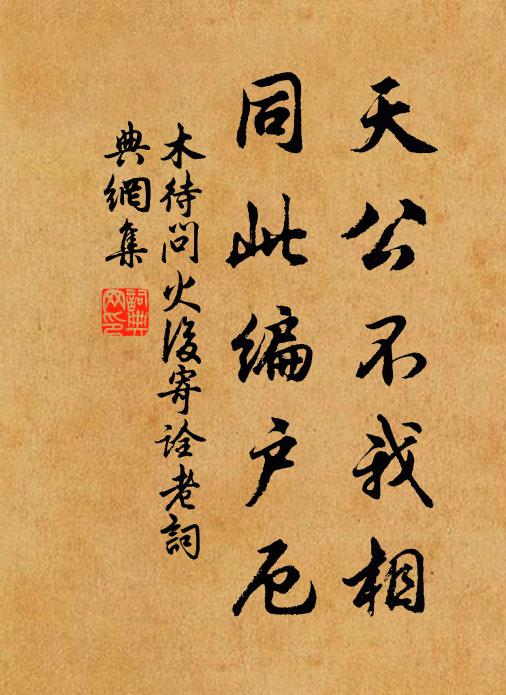 天公不我相
同此编户厄
木待问火后寄诠老词
典網集
詞典
网印